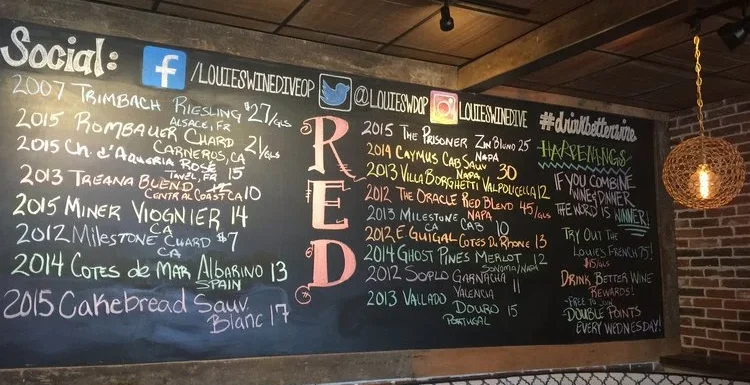 Social:
f /LOUIESWINEDIVEOP @LOUIESWDOP LOUIESWINEDIVE
2007 TRIMBACH RIESLING $27/GLS
ALSACE, FR
2015 ROMBAUER CHARD 21/GLS
CARNEROS, CA
2015 Ch. d'AQUERIA ROSÉ
TAVEL, FR 15
2013 TREANA BLEND
CENTRAL COAST CA 10
2015 MINER VIOGNIER 14
CA
2012 MILESTONE CHARD $7
CA
2014 COTES de MAR ALBARINO 13
SPAIN
2015 Cakebread Sauv.
Blanc 17
RED
2015 THE PRISONER ZIN BLEND 25
NAPA
2014 CAYMUS CAB SAUV 30
NAPA
2013 VILLA BORGHETTI VALPOLICELLA 12
2012 THE ORACLE RED BLEND 45/GLS
NAPA
2013 MILESTONE CAB 10
CA
2012 E GUIGAL COTES DU RHONE 13
2014 GHOST PINES MERLOT 12
SONOMA/NAPA
2012 SOPLO GARNACHA 11
VALENCIA
2013 VALLADO DOURO 15
PORTUGAL
#drinkbetterwine
HAPPENINGS
IF YOU COMBINE
WINE & DINNER
THE WORD IS WINNER!
TRY OUT THE
LOUIES FRENCH 75!
DRINK BETTER WINE
REWARDS!
-FREE TO JOIN
-DOUBLE POINTS
EVERY WEDNESDAY!